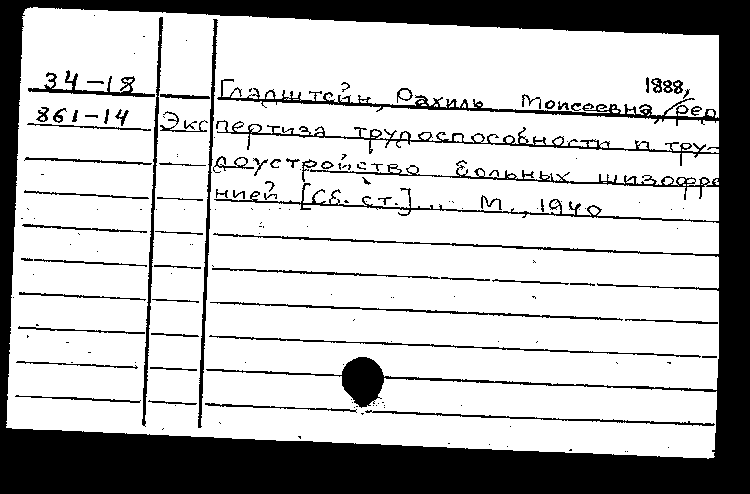 34-18
1888,
Гладштейн, Рахиль Моисеевна, ред
861-14
Экспертиза трудоспособности и тру-
доустройство больных шизофре
нией [Сб. ст.] .. М., 1940